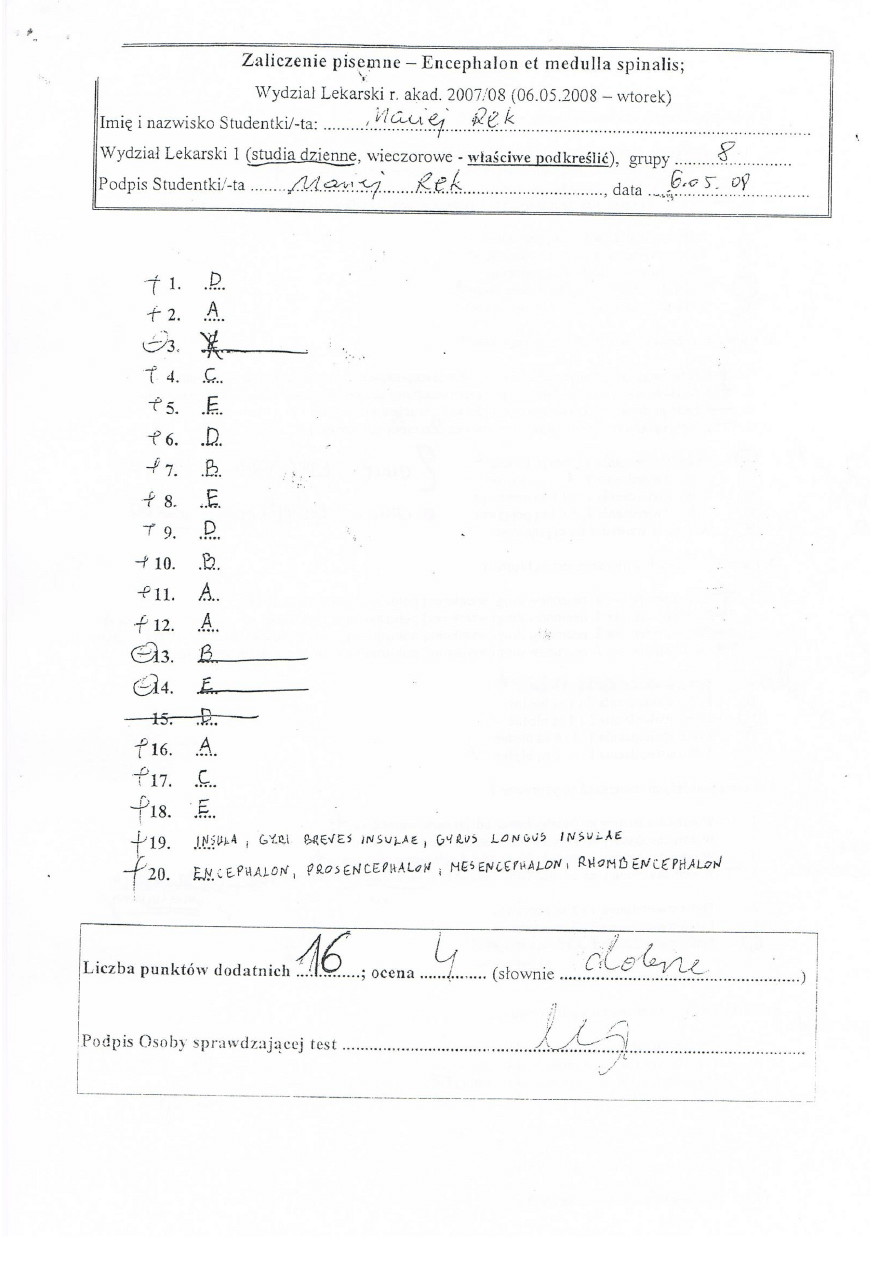 Zaliczenie pisemne – Encephalon et medulla spinalis;
Wydział Lekarski r. akad. 2007/08 (06.05.2008 – wtorek)
Imię i nazwisko Studentki/-ta: Maciej Rek
Wydział Lekarski 1 (studia dzienne, wieczorowe - właściwe podkreślić), grupy 8
Podpis Studentki/-ta Maciej Rek, data 6.05.08
+ 1. D
+ 2. A
- 3.
+ 4. C
+ 5. E
+ 6. D
+ 7. B
+ 8. E
+ 9. D
+ 10. B
+ 11. A
+ 12. A
- 13. B
- 14. E
15. D
+ 16. A
+ 17. C
+ 18. E
+ 19. INSULA, GYRI BREVES INSULAE, GYRUS LONGUS INSULAE
+ 20. ENCEPHALON, PROSENCEPHALON, MESENCEPHALON, RHOMBENCEPHALON
Liczba punktów dodatnich 16; ocena 4 (słownie dobre)
Podpis Osoby sprawdzającej test